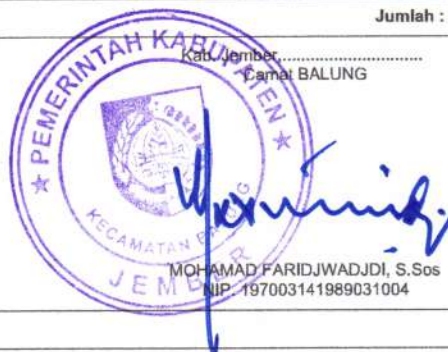 Jumlah :
Kab. Jember,................................
Camat BALUNG
PEMERINTAH KABUPATEN
KECAMATAN BALUNG
JEMBER
MOHAMAD FARIDJWADJDI, S.Sos
NIP. 197003141989031004